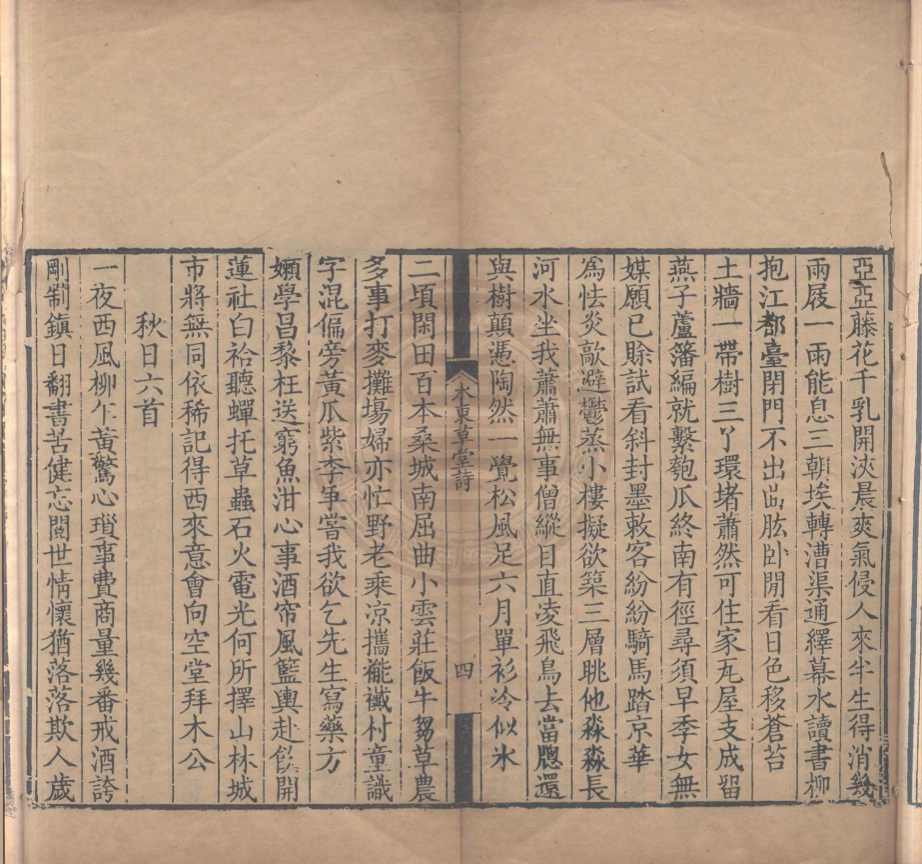 亞亞藤花千乳開浹晨爽氣侵人來半生得消幾
兩屐一兩能息三朝埃轉漕渠通繹幕水讀書柳
抱江都臺閉門不出曲肱卧閒看日色移蒼苔
土牆一帶樹三丫環堵蕭然可住家瓦屋支成留
燕子蘆籓編就繫匏瓜終南有徑尋須早季女無
媒願已賒試看斜封墨敕客紛紛騎馬踏京華
爲怯炎歊避鬱蒸小樓擬欲築三層眺他淼淼長
河水坐我蕭蕭無事僧縱目直凌飛鳥去當牕還
與樹顛憑陶然一覺松風足六月單衫冷似氷
木東草堂詩
四
二頃閑田百本桑城南屈曲小雲莊飯牛芻草農
多事打麥攤塲婦亦忙野老乘涼攜襹襶村童識
字混偏旁黃瓜紫李事嘗我欲乞先生寫藥方
嬾學昌黎枉送窮魚泔心事酒帘風籃輿赴飲開
蓮社白袷聽蟬托草蟲石火電光何所擇山林城
市將無同依稀記得西來意會向空堂拜木公
秋日六首
一夜西風柳乍黃驚心瑣事費商量幾番戒酒誇
剛制鎮日翻書苦健忘閱世情懷猶落落欺人歲